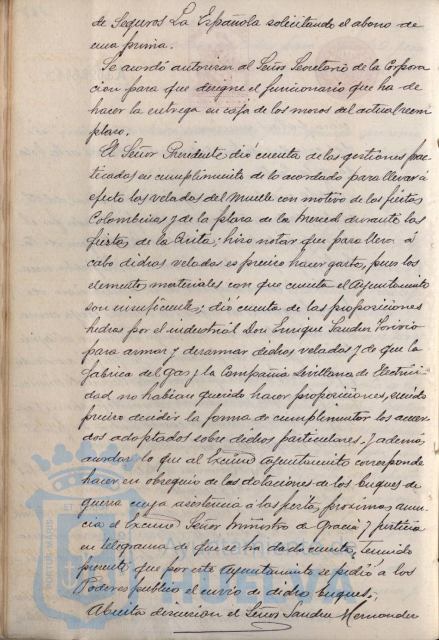 de Seguros La Española solicitando el abono de
una prima.
Se acordó autorizar al Señor Secretario de la Corpora
cion para que designe el funcionario que ha de
hacer la entrega en caja de los mozos del actual reem
plazo.
El Señor Presidente dió cuenta de las gestiones prac
ticadas en cumplimiento de lo acordado para llevar á
efecto las veladas del Muelle con motivo de las fiestas
Colombinas y de la plaza de la Merced durante las
fiestas de la Cinta; hizo notar que para llevar á
cabo dichas veladas es preciso hacer gastos, pues los
elementos materiales con que cuenta el Ayuntamiento
son insuficientes; dió cuenta de las proposiciones
hechas por el industrial Don Enrique Sanchez
para armar y desarmar dichas veladas y de que la
fabrica del gas y la Compañia Sevillana de Electrici
dad no habian querido hacer proposiciones, siendo
preciso decidir la forma de cumplimentar los acuer
dos adoptados sobre dichos particulares. Y ademas,
acordar lo que al Excmo Ayuntamiento corresponde
hacer en obsequio de las dotaciones de los buques de
guerra cuya asistencia á las fiestas proximas anun
cia el Excmo Señor Ministro de Gracia y Justicia
en telegrama de que se ha dado cuenta, teniendo
presente que por este Ayuntamiento se pidió a los
Poderes publicos el envio de dichos buques;
Abierta discusion el Señor Sanchez Hernandez
PORTUS MARIS ET
HUELVA